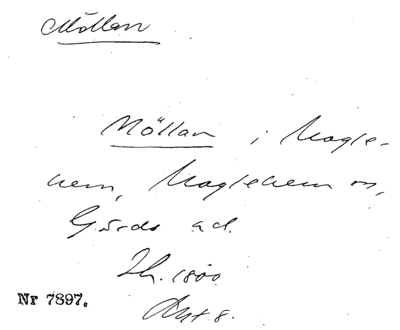 Möllan
Möllan i Magle-
hem, Maglehem sn,
Gärds hd.
Jh. 1800
Akt 8.
Nr 7897.